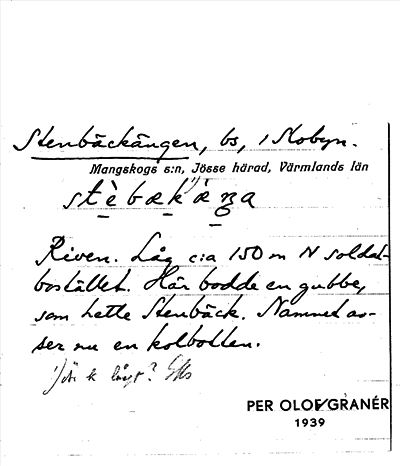 Stenbäckängen, bs, i Slobyn.
Mangskogs s:n, Jösse härad, Värmlands län
stèbækæ̀ŋa
Riven. Låg c:a 150 m N soldat-
bostället. Här bodde en gubbe,
som hette Stenbäck. Namnet av-
ser nu en kolbotten.
k långt?
PER OLOF GRANÉR
1939